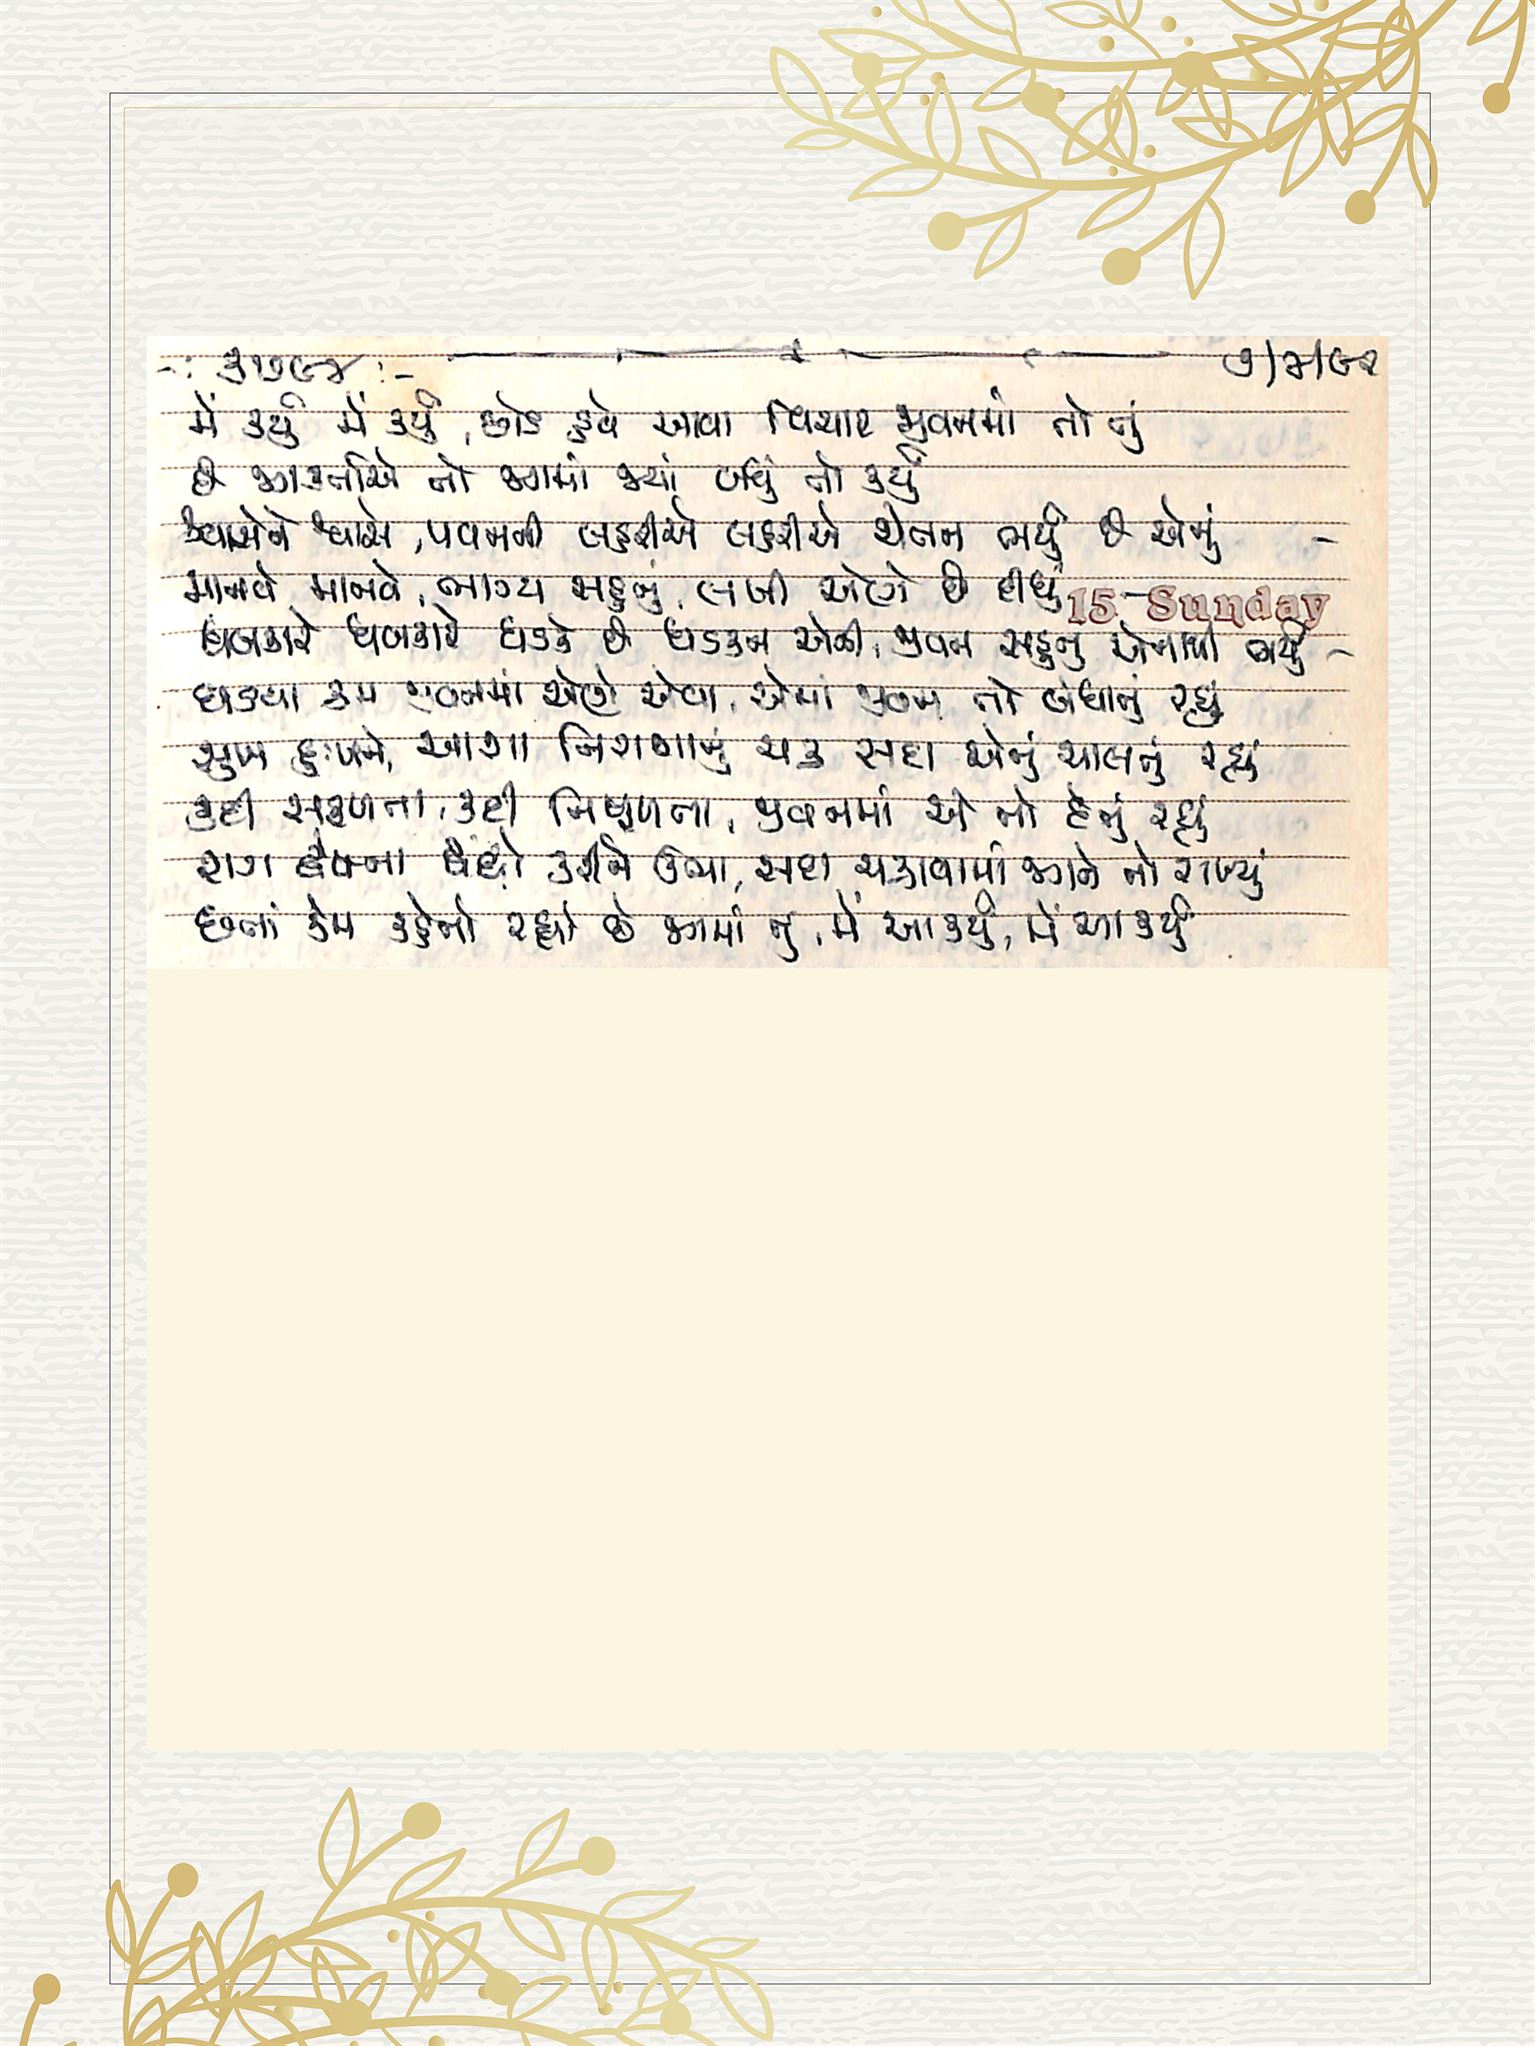 -: ૩૧૭૯૪ :- ૭/૪/૯૨
મેં કર્યું મેં કર્યું, છોડ હવે આવા વિચાર જીવનમાં તો તું
છે જગકર્તાએ તો જગમાં જ્યાં બધું તો કર્યું
શ્વાસેને શ્વાસે, પવનની લહરીએ લહરીએ ચેતન ભર્યું છે એનું -
માનવે માનવે, ભાગ્ય સહુનું, લખી એણે છે દીધું -
15 Sunday
ધબકારે ધબકારે ધડકે છે ધડકન એની, જીવન સહુનું એનાથી ભર્યું -
ઘડયા ક્રમ જીવનમાં એણે એવા, એમાં જીવન તો બંધાતું રહ્યું
સુખ દુઃખને, આશા નિરાશાનું ચક્ર સદા એનું ચાલતું રહ્યું
કદી સફળતા, કદી નિષ્ફળતા, જીવનમાં એ તો દેતું રહ્યું
રાગ દ્વેષના કરીને ઊભા, સદા ચકરાવામાં જગને તો રાખ્યું
છતાં કેમ કહેતો રહ્યો છે જગમાં તું, મેં આ કર્યું, મેં આ કર્યું